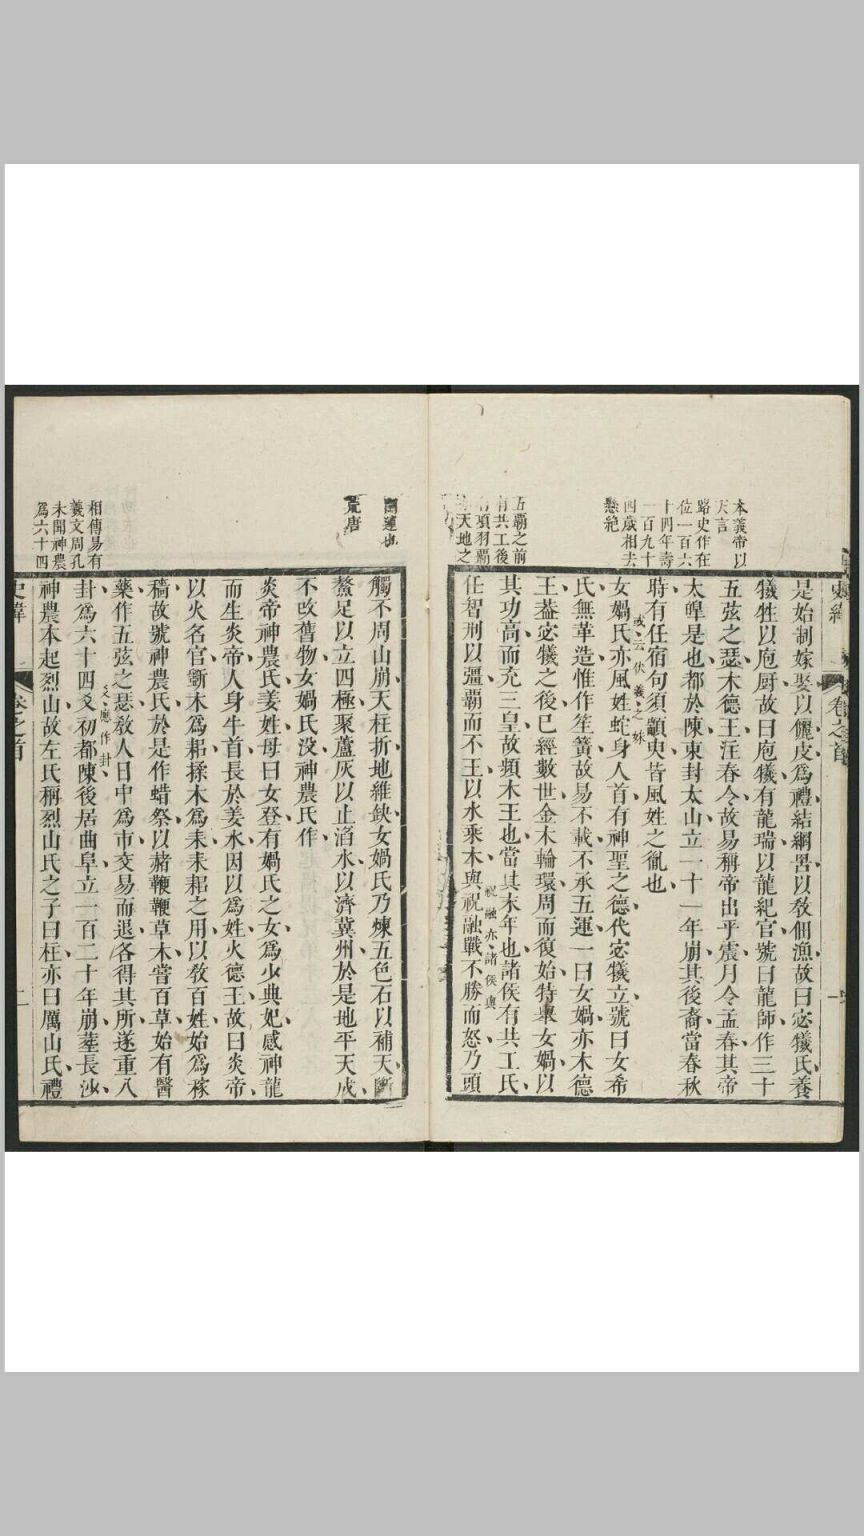 史緯
卷之首
本義帝以
天言
路史作在
位一百六
十四年壽
一百九十
四歲相去
懸絶
五霸之前
有共工後
有項羽霸
天地之
是始制嫁娶以儷皮爲禮結網罟以敎佃漁故曰宓犧氏養
犧牲以庖厨故曰庖犧有龍瑞以龍紀官號曰龍師作三十
五弦之瑟木德王注春令故易稱帝出乎震月令孟春其帝
太皥是也都於陳東封太山立一十一年崩其後裔當春秋
時有任宿句須顓臾皆風姓之胤也
女媧氏亦風姓蛇身人首有神聖之德代宓犧立號曰女希
或云伏羲之妹
氏無革造惟作笙簧故易不載不承五運一曰女媧亦木德
王葢宓犧之後已經數世金木輪環周而復始特舉女媧以
其功高而充三皇故頻木王也當其末年也諸侯有共工氏
任智刑以彊霸而不王以水乘木與祝融戰不勝而怒乃頭
祝融亦諸侯與
閏運也
荒唐
相傳易有
羲文周孔
未聞神農
爲六十四
觸不周山崩天柱折地維缺女媧氏乃煉五色石以補天斷
鰲足以立四極聚蘆灰以止滔水以濟冀州於是地平天成
不攺舊物女媧氏没神農氏作
炎帝神農氏姜姓母曰女登有媧氏之女爲少典妃感神龍
而生炎帝人身牛首長於姜水因以爲姓火德王故曰炎帝
以火名官斵木爲耜揉木爲耒耒耜之用以敎百姓始爲稼
穡故號神農氏於是作蜡祭以赭鞭鞭草木嘗百草始有醫
藥作五弦之瑟敎人日中爲市交易而退各得其所遂重八
卦爲六十四爻初都陳後居曲阜立一百二十年崩塟長沙
爻應作卦
神農本起烈山故左氏稱烈山氏之子曰柱亦曰厲山氏禮
史緯
卷之首
二